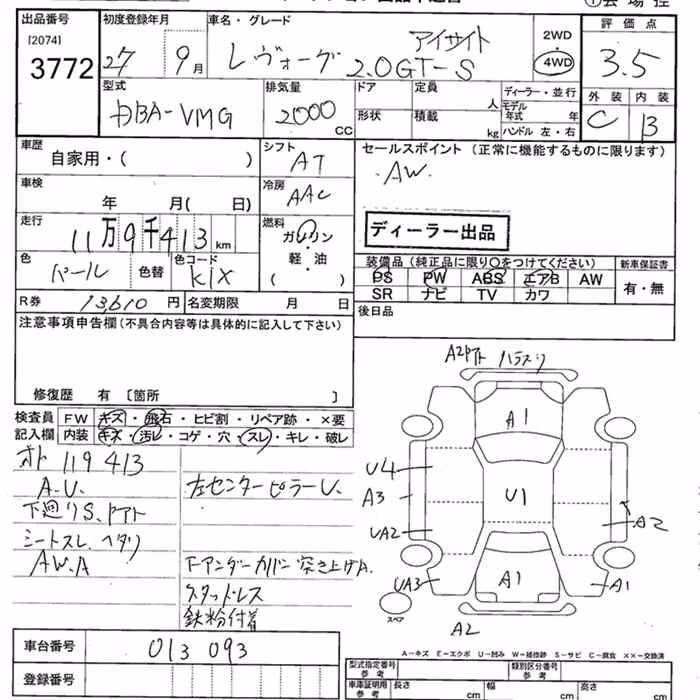 出品番号
[2074]
3772
初度登録年月
27 9月
車名・グレード
レヴォーグ アイサイト
2.0GT-S
2WD
4WD
評価点
3.5
外装 内装
C B
型式
DBA-VMG
排気量
2000
CC
ドア
定員
人
形状
積載
kg
ディーラー・並行
モデル
年式 年
ハンドル 左・右
車歴
自家用・( )
シフト
AT
セールスポイント (正常に機能するものに限ります)
AW.
車検
年 月( 日)
冷房
AAC
走行
11万9千413km
燃料
ガソリン
・
軽・油
( )
ディーラー出品
色
パール
色替
色コード
K1X
装備品(純正品に限り○をつけてください)
PS PW ABS エアB AW
SR ナビ TV カワ
新車保証書
有・無
R券 13,610 円
名変期限 月 日
後日品
注意事項申告欄(不具合内容等は具体的に記入して下さい)
修復歴 有 [箇所 ]
検査員
記入欄
FW キズ・飛石・ヒビ割・リペア跡・×要
内装 キズ・汚レ・コゲ・穴・スレ・キレ・破レ
オト 119413
A.U.
左センターピラーU.
下廻りS、Pアト
シートスレ、ヘタリ
AW.A
下アンダーカバー突き上げA.
スタッドレス
鉄粉付着
A2Pアト ハラスリ
A1
U4
A3
U1
UA2
A2
UA3
A1
A1
スペア
A2
車台番号
013093
登録番号
A-キズ E-エクボ U-凹み W-補修跡 S-サビ C-腐食 ××-交換済
型式指定番号
参考
類別区分番号
参考
車庫証明用
参考
長さ cm
幅 cm
高さ cm